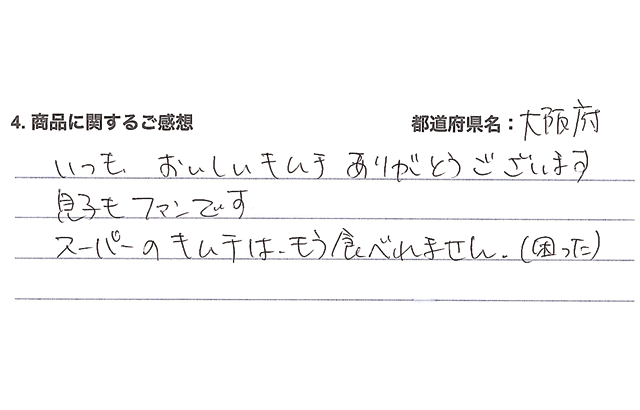 4. 商品に関するご感想
都道府県名：大阪府
いつも おいしいキムチ ありがとうございます
息子も ファンです
スーパーの キムチは、もう食べれません。(困った)